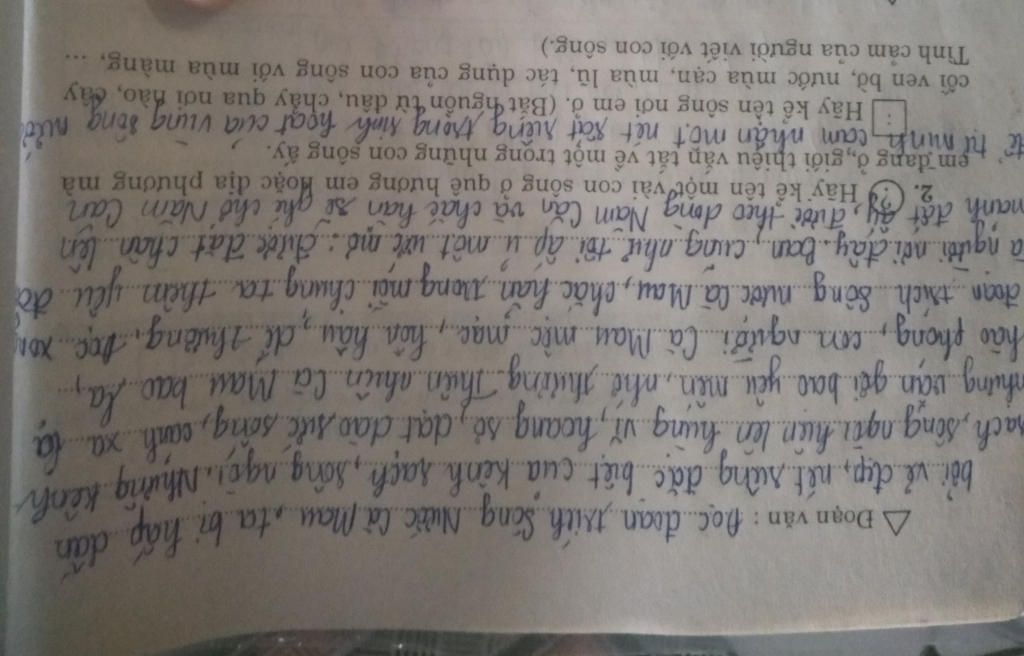 Đoạn văn : Đọc đoạn trích Sông Nước Cà Mau, ta bị hấp dẫn
bởi vẻ đẹp, nét riêng đặc biệt của kênh rạch, sông ngòi. Những kênh
rạch, sông ngòi hiện lên hùng vĩ, hoang sơ, dạt dào sức sống, cảnh xa lạ
những vẫn gởi bao yêu mến, nhớ thương. Thiên nhiên Cà Mau bao la,
hào phóng, con người Cà Mau mộc mạc, hồn hậu, dễ thương. Đọc xong
đoạn trích Sông nước Cà Mau, chắc hẳn trong mỗi chúng ta thêm yêu đất
và người nơi đây. Bạn, cũng như tôi ấp ủ một ước mơ : được đặt chân lên
mảnh đất ấy, được theo dòng Năm Căn và chắc hẳn sẽ ghé chợ Năm Căn
2. ? Hãy kể tên một vài con sông ở quê hương em hoặc địa phương mà
em đang ở, giới thiệu vắn tắt về một trong những con sông ấy.
để tự mình cảm nhận một nét rất riêng trong sinh hoạt của vùng sông nước
: Hãy kể tên sông nơi em ở. (Bắt nguồn từ đâu, chảy qua nơi nào, cây
cối ven bờ, nước mùa cạn, mùa lũ, tác dụng của con sông với mùa màng, ...
Tình cảm của người viết với con sông.)